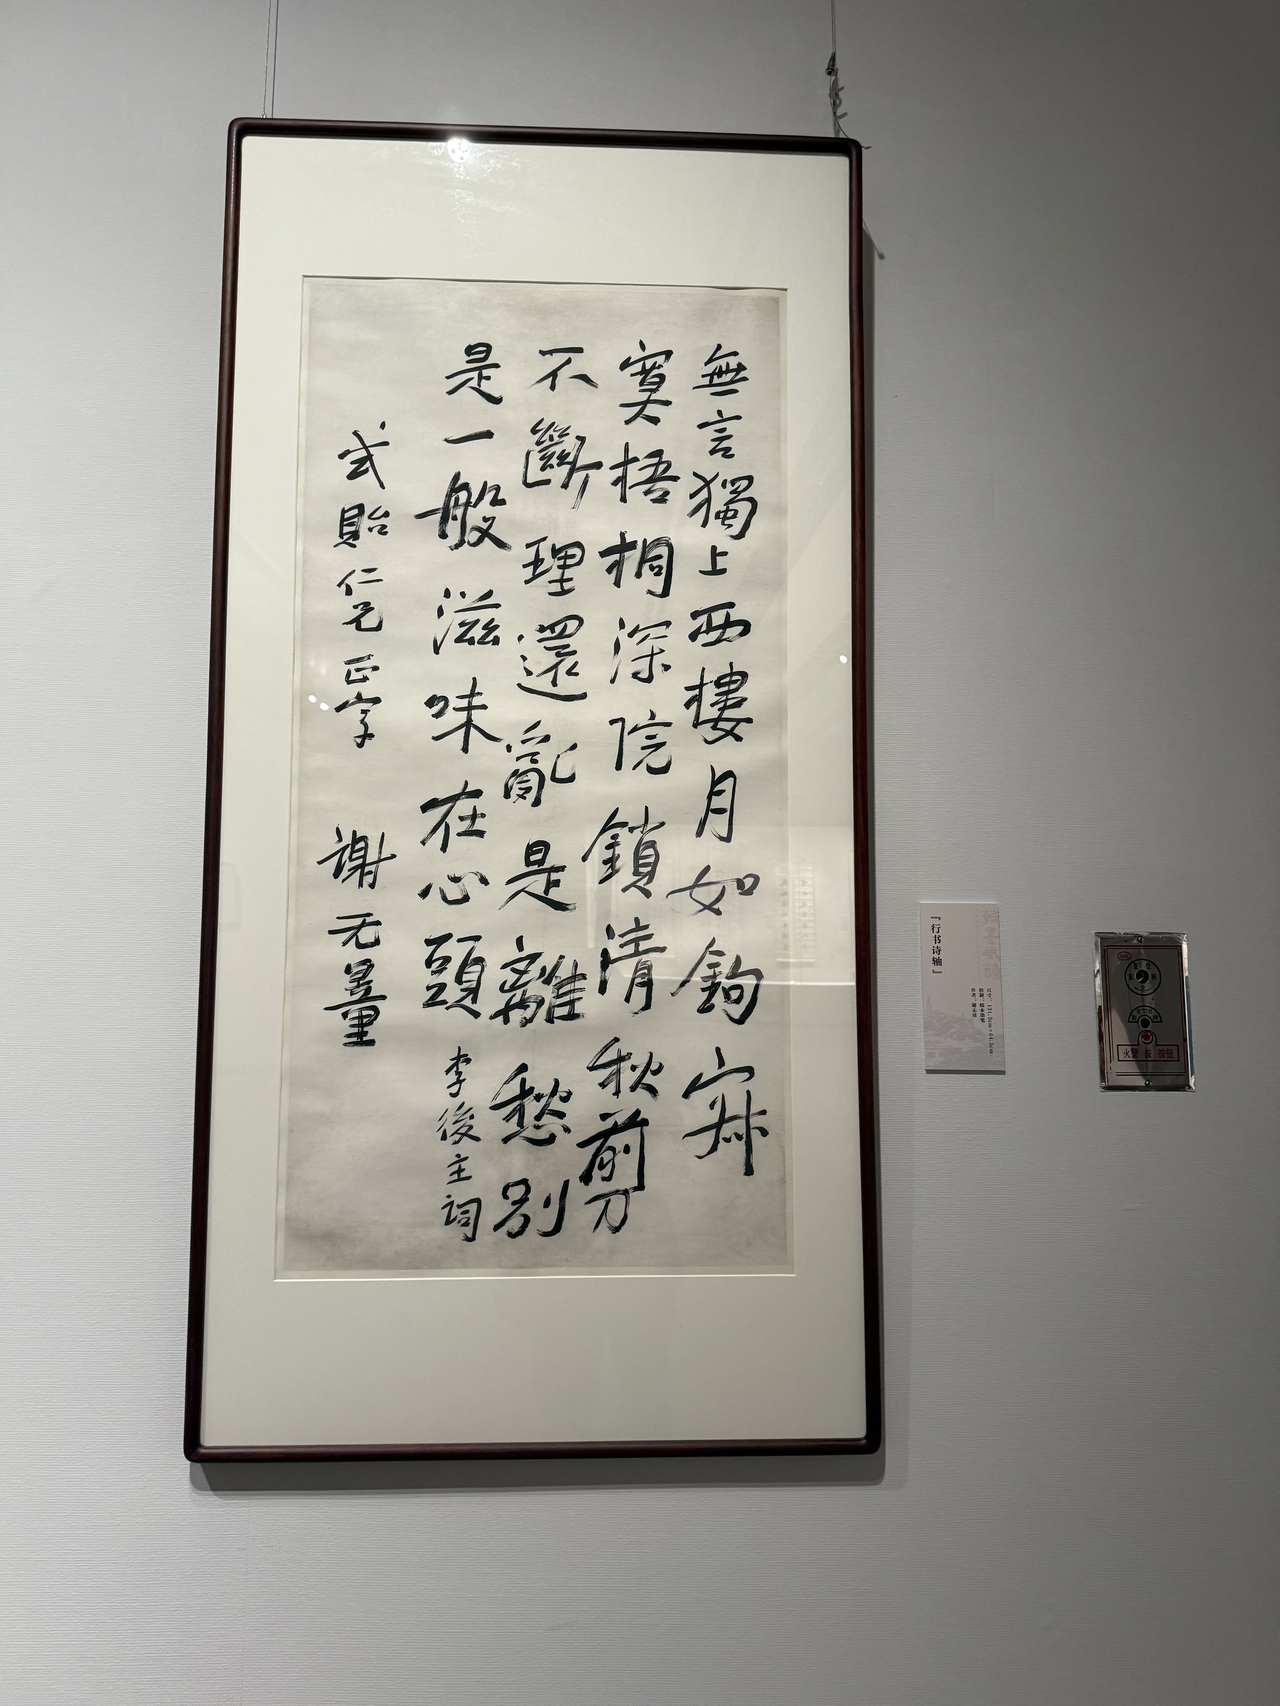 無言獨上西樓月如鉤寂
寞梧桐深院鎖清秋剪
不斷理還亂是離愁別
是一般滋味在心頭
李後主詞
式貽仁兄正字
謝无量
『行书诗轴』
火警 按 按钮